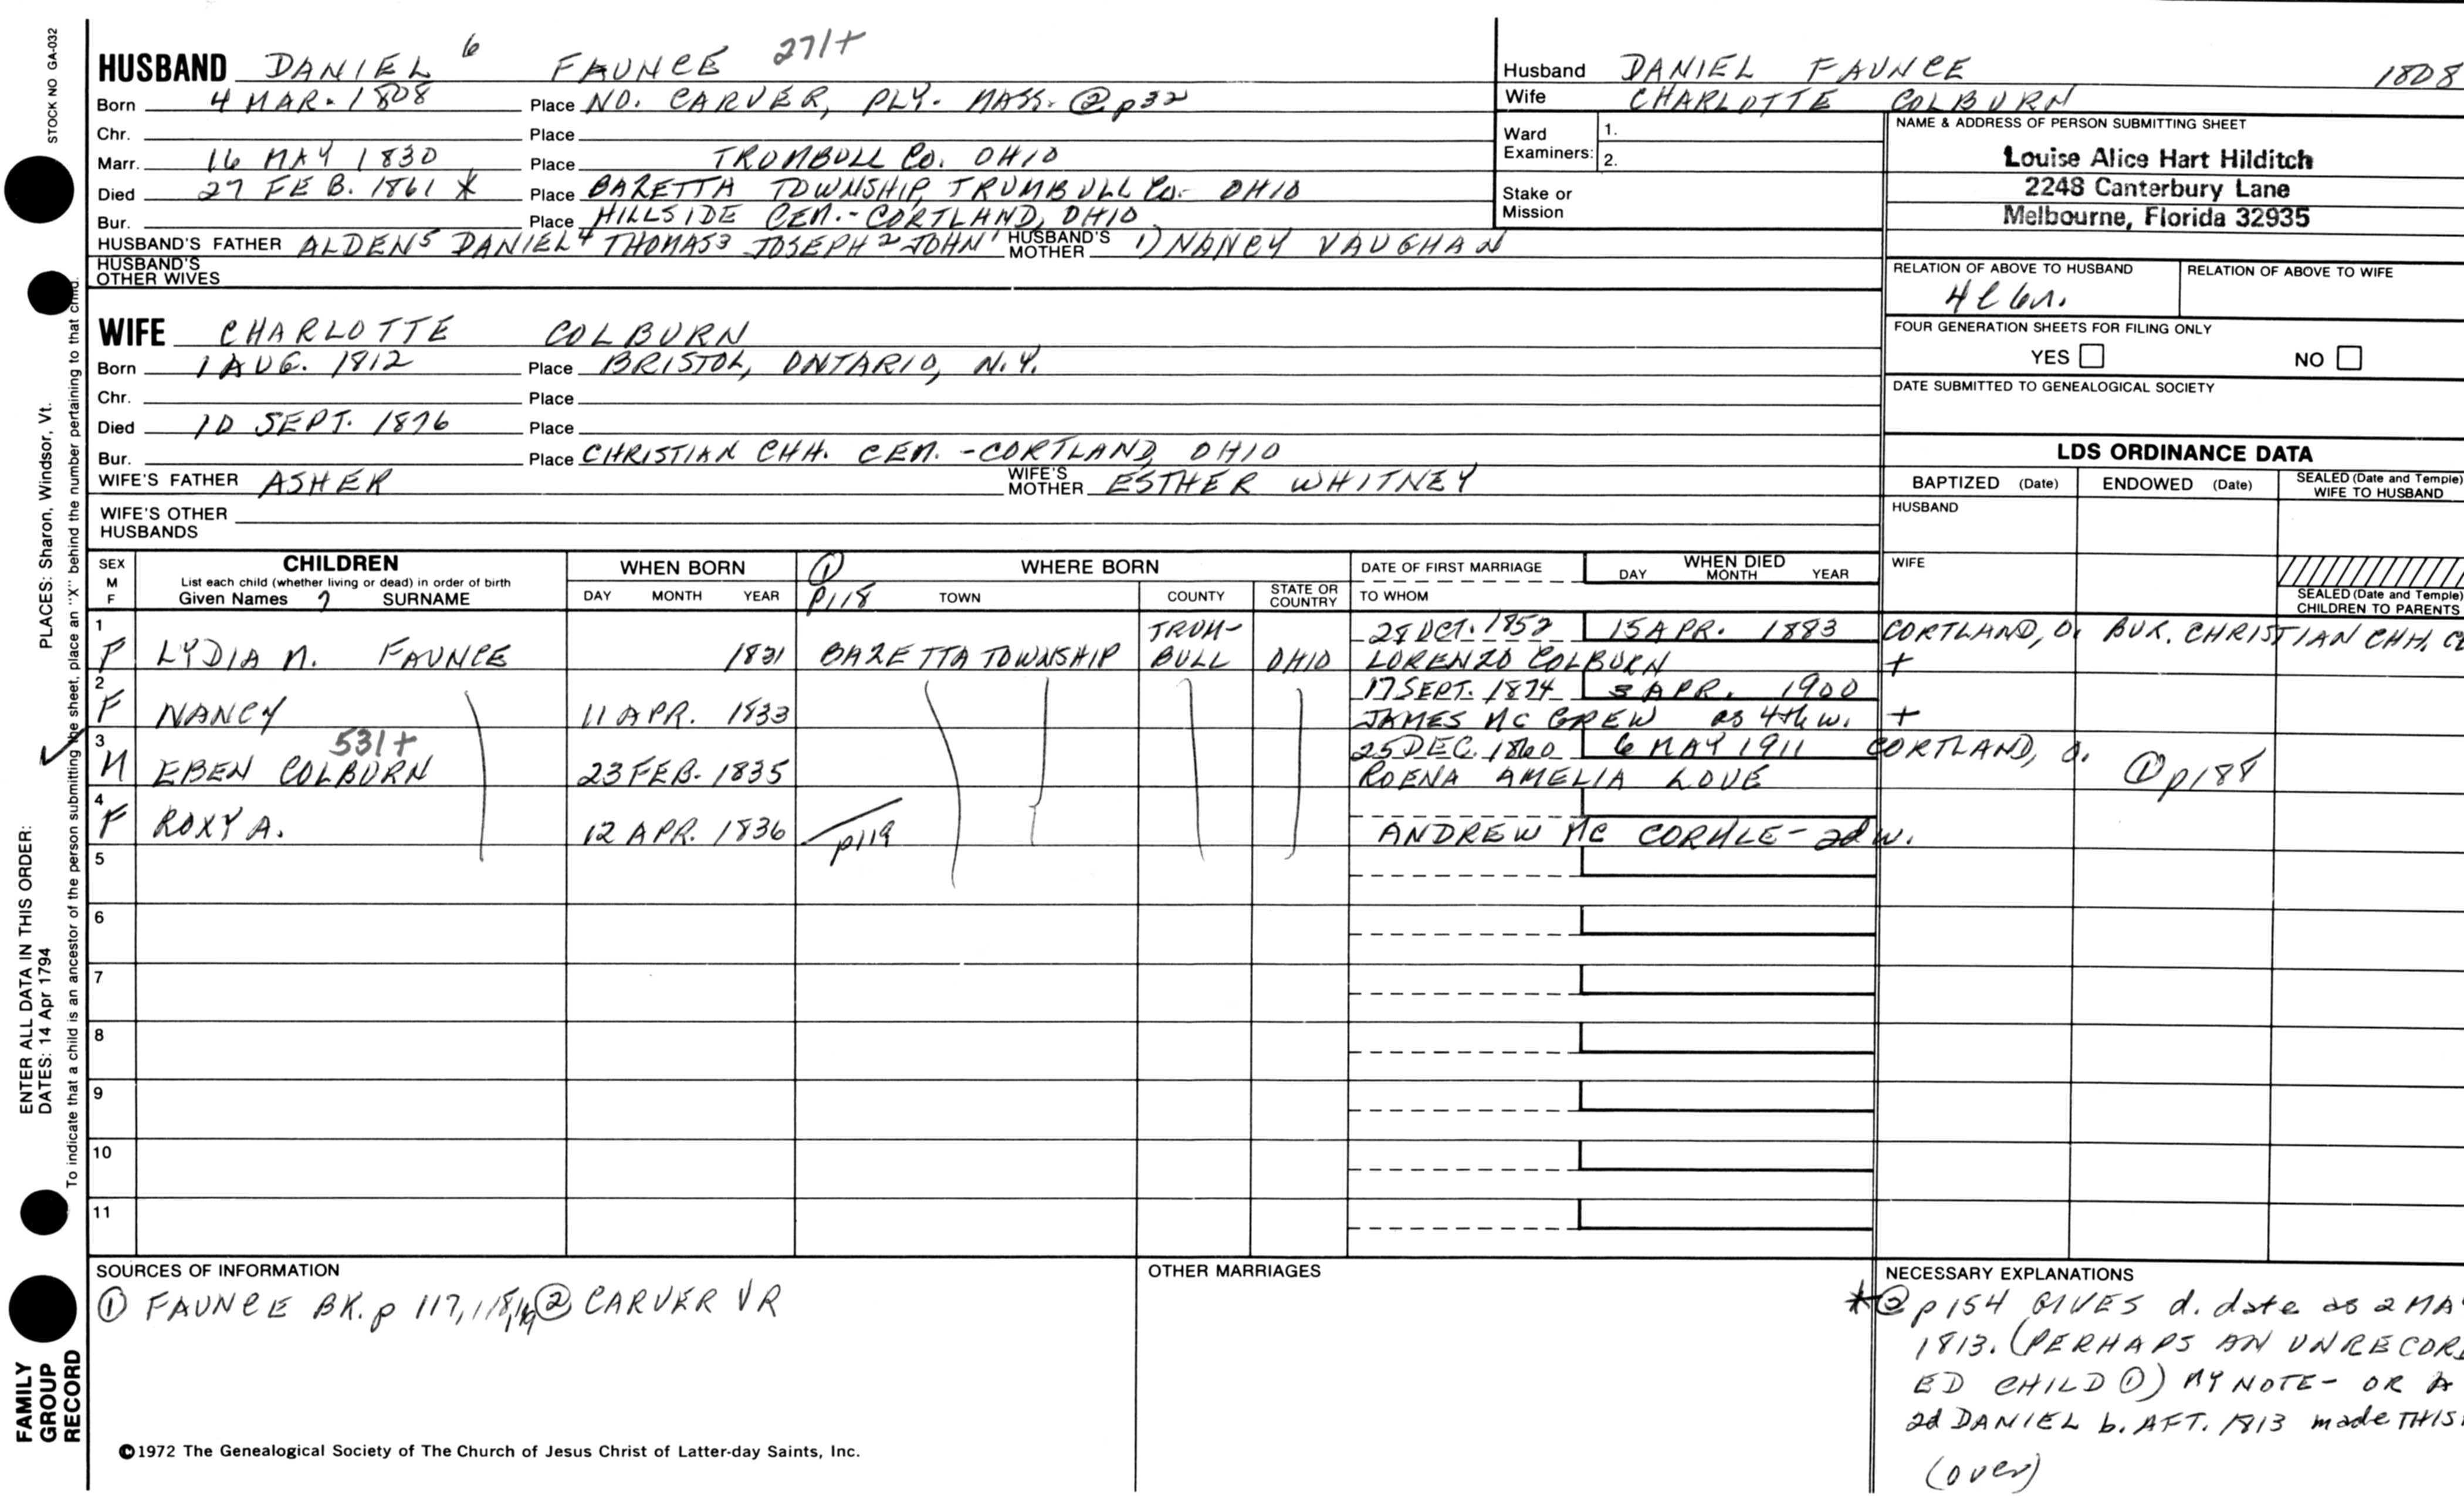 STOCK NO GA-032
HUSBAND DANIEL 6 FAUNCE 271+
Born 4 MAR. 1808 Place NO. CARVER, PLY. MASS. ② p32
Chr. Place
Marr. 16 MAY 1830 Place TRUMBULL CO. OHIO
Died 27 FEB. 1861 * Place BAZETTA TOWNSHIP, TRUMBULL CO. OHIO
Bur. Place HILLSIDE CEM. - CORTLAND, OHIO
HUSBAND'S FATHER ALDEN5 DANIEL4 THOMAS3 JOSEPH2 JOHN1 HUSBAND'S MOTHER 1) NANCY VAUGHAN
HUSBAND'S OTHER WIVES
WIFE CHARLOTTE COLBURN
Born 1 AUG. 1812 Place BRISTOL, ONTARIO, N.Y.
Chr. Place
Died 10 SEPT. 1876 Place
Bur. Place CHRISTIAN CHH. CEM. - CORTLAND, OHIO
WIFE'S FATHER ASHER WIFE'S MOTHER ESTHER WHITNEY
WIFE'S OTHER HUSBANDS
Husband DANIEL FAUNCE 1808
Wife CHARLOTTE COLBURN
Ward Examiners: 1.
2.
Stake or Mission
NAME & ADDRESS OF PERSON SUBMITTING SHEET
Louise Alice Hart Hilditch
2248 Canterbury Lane
Melbourne, Florida 32935
RELATION OF ABOVE TO HUSBAND
RELATION OF ABOVE TO WIFE
FOUR GENERATION SHEETS FOR FILING ONLY
YES NO
DATE SUBMITTED TO GENEALOGICAL SOCIETY
LDS ORDINANCE DATA
BAPTIZED (Date) ENDOWED (Date) SEALED (Date and Temple) WIFE TO HUSBAND
HUSBAND
WIFE
SEALED (Date and Temple) CHILDREN TO PARENTS
SEX M F
CHILDREN
List each child (whether living or dead) in order of birth
Given Names 7 SURNAME
WHEN BORN
DAY MONTH YEAR
① p118
WHERE BORN
TOWN COUNTY STATE OR COUNTRY
DATE OF FIRST MARRIAGE
TO WHOM
WHEN DIED
DAY MONTH YEAR
1 F LYDIA M. FAUNCE 1831 BAZETTA TOWNSHIP TRUM-BULL OHIO 28 OCT. 1852 15 APR. 1883 CORTLAND, O. BUR. CHRISTIAN CHH. CE
LORENZO COLBURN +
2 F NANCY 11 APR. 1833 17 SEPT. 1874 3 APR. 1900
JAMES MC GREW as 4th w. +
3 M EBEN COLBURN 531+ 23 FEB. 1835 25 DEC. 1860 6 MAY 1911 CORTLAND, O. ① p188
ROENA AMELIA LOVE
4 F ROXY A. 12 APR. 1836 p119
ANDREW MC CORKLE - 2d w.
5
6
7
8
9
10
11
SOURCES OF INFORMATION
① FAUNCE BK. p 117, 118, 119 ② CARVER VR
OTHER MARRIAGES
NECESSARY EXPLANATIONS
* ② p154 GIVES d. date as 2 MA
1813. (PERHAPS AN UNRECORD
ED CHILD ①) MY NOTE - OR A
2d DANIEL b. AFT. 1813 made THIS
(over)
©1972 The Genealogical Society of The Church of Jesus Christ of Latter-day Saints, Inc.
FAMILY GROUP RECORD
ENTER ALL DATA IN THIS ORDER:
DATES: 14 Apr 1794
PLACES: Sharon, Windsor, Vt.
To indicate that a child is an ancestor of the person submitting the sheet, place an "X" behind the number pertaining to that child.